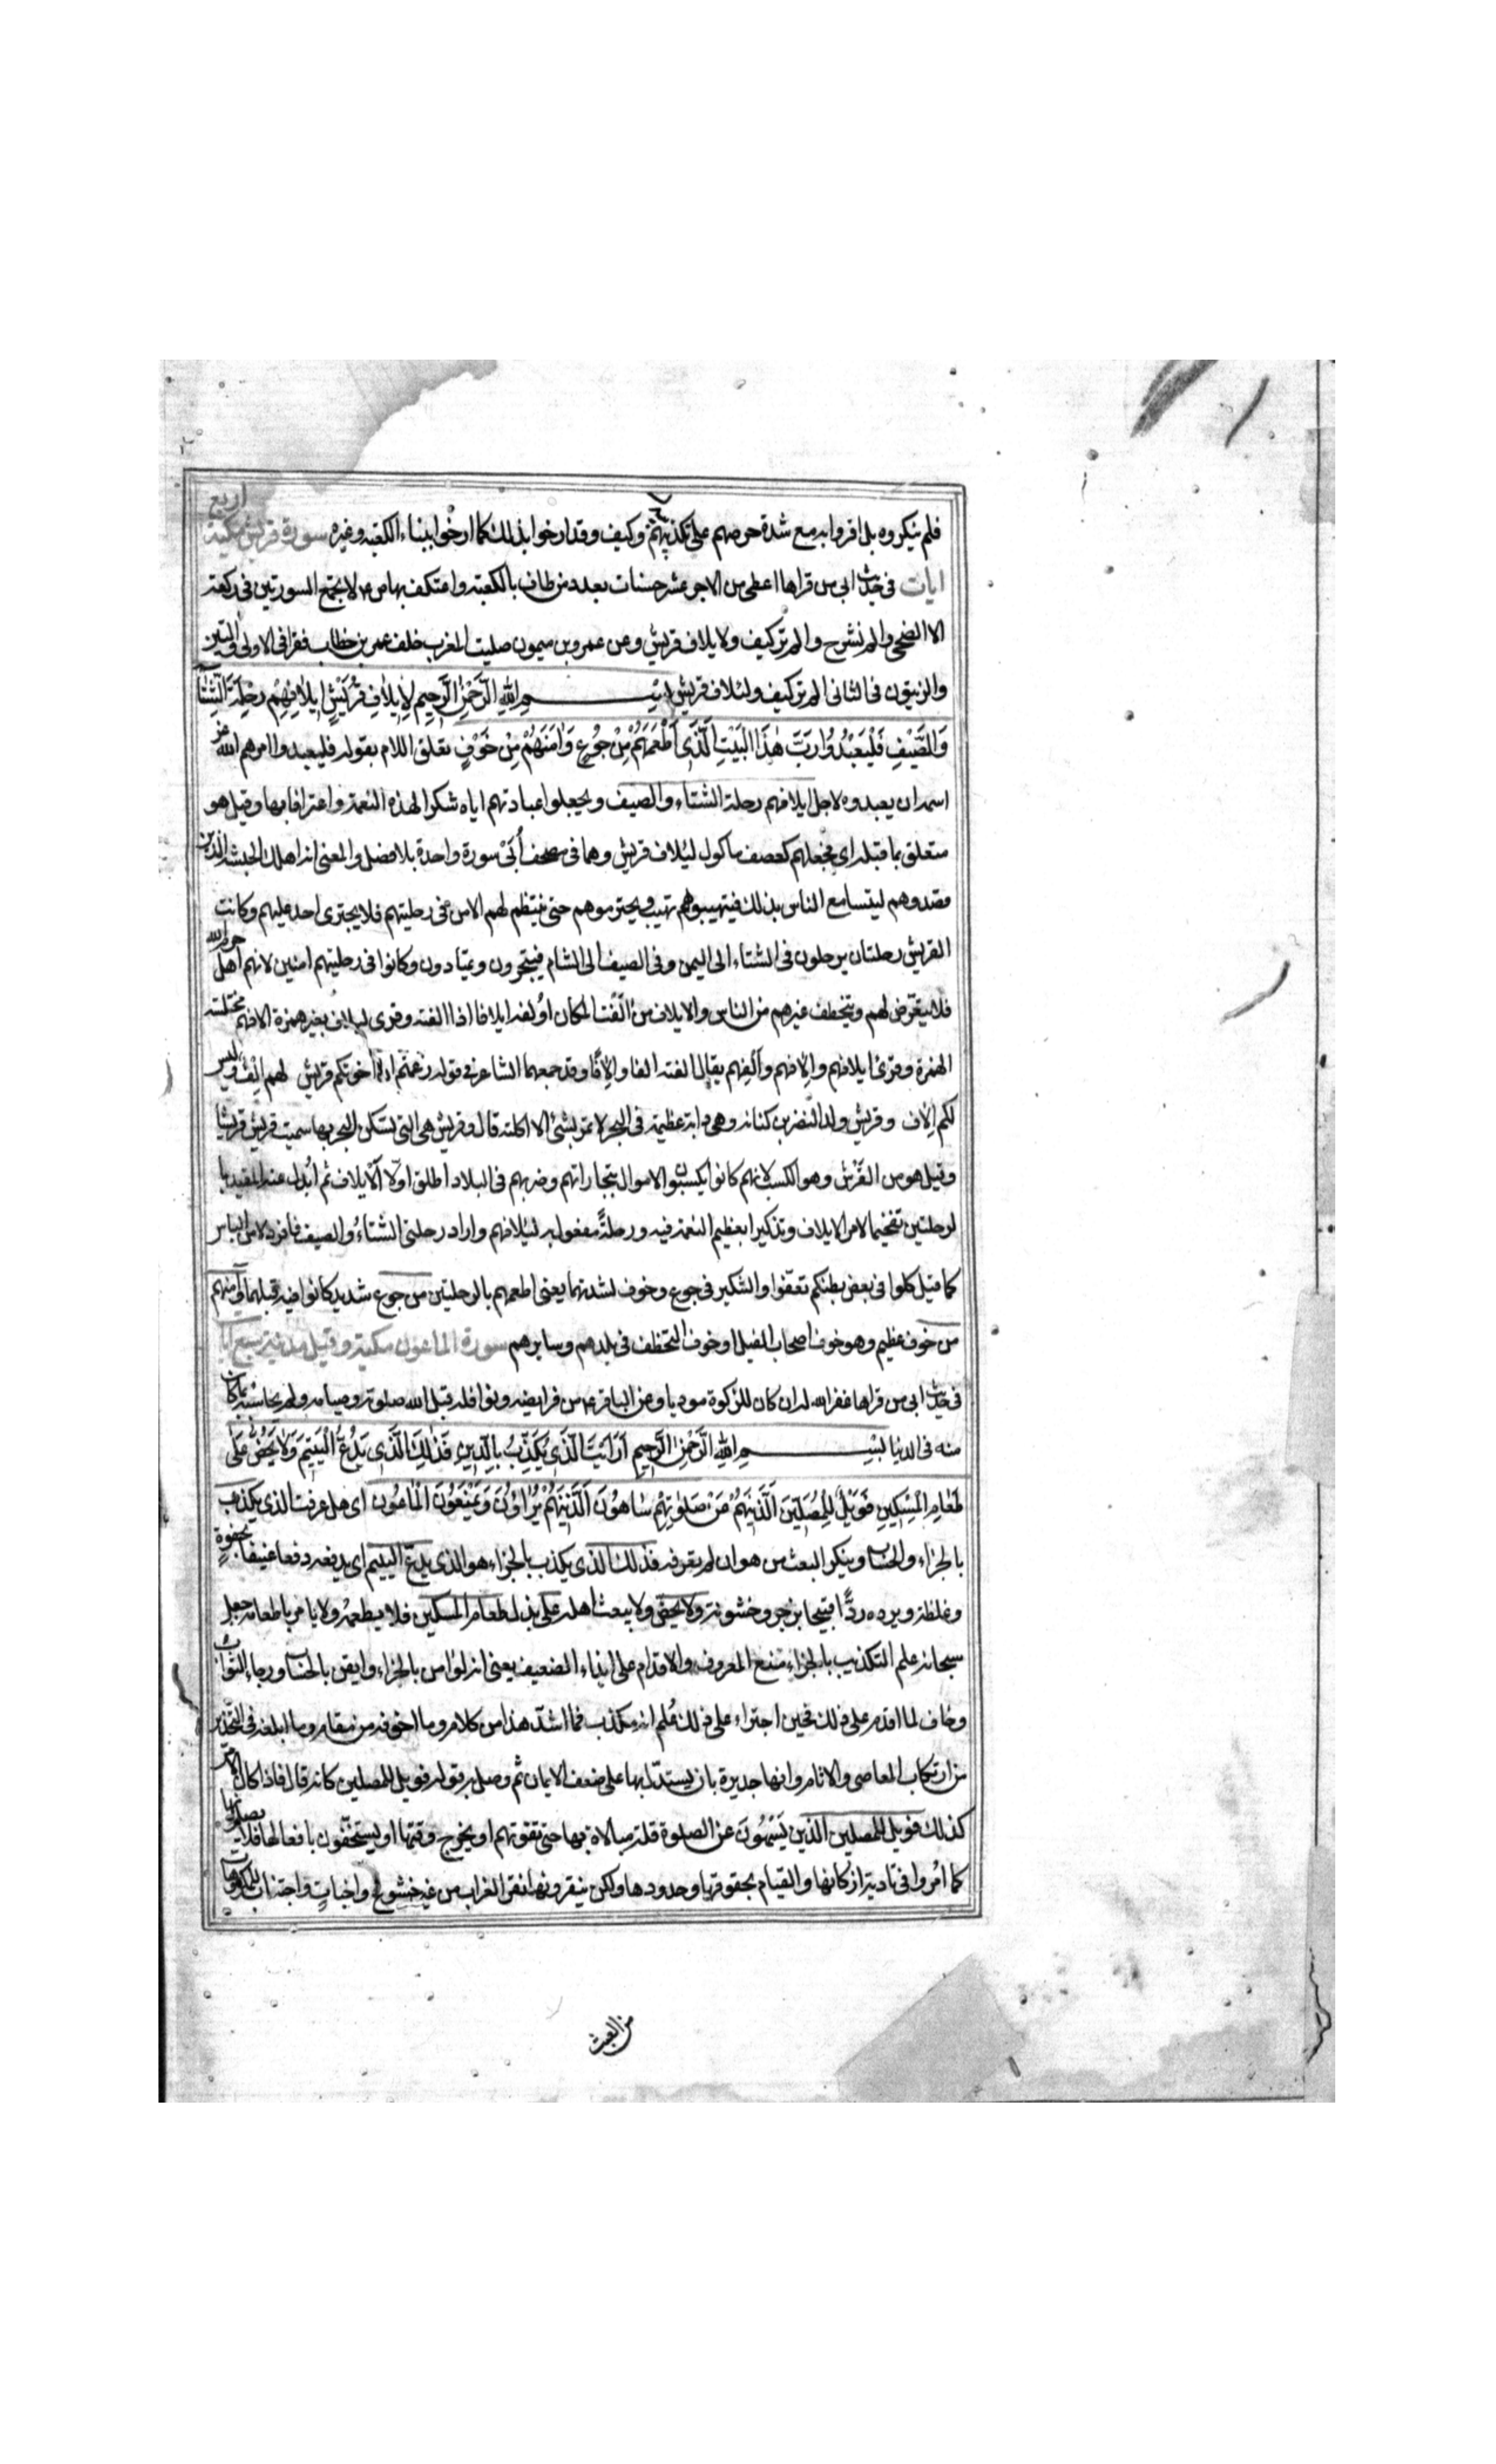 فلم ينكروه بل اقروا به مع شدة حرصهم على تكذيبهم وكيف وقد ارخوا بذلك كما ارخوا ببناء الكعبة وغيره سورة قريش مكية اربع
ايات في حديث ابي من قراها اعطى من الاجر عشر حسنات بعدد من طاف بالكعبة واعتكف بها ص م لا تجتمع السورتين في ركعة
الا الضحى والم نشرح والم تر كيف ولايلاف قريش وعن عمرو بن ميمون صليت المغرب خلف عمر بن خطاب فقرا في الاولى والتين
والزيتون في الثاني الم تر كيف ولئلاف قريش بسم الله الرحمن الرحيم لِإيلافِ قُرَيْشٍ إيلافِهِمْ رِحْلَةَ الشِّتَاءِ
وَالصَّيْفِ فَلْيَعْبُدُوا رَبَّ هٰذَا الْبَيْتِ الَّذِي أَطْعَمَهُمْ مِنْ جُوعٍ وَآمَنَهُمْ مِنْ خَوْفٍ تعلق اللام بقوله فليعبدوا امرهم الله عز
اسمه ان يعبدوه لاجل ايلافهم رحلة الشتاء والصيف ويجعلوا عبادتهم اياه شكرا لهذه النعمة واعترافا بها وقيل هو
متعلق بما قبله اي فجعلهم كعصف ماكول ليئلاف قريش وهما في مصحف أُبَيّ سورة واحدة بلا فصل والمعنى انه اهلك الحبشة الذين
قصدوهم ليتسامع الناس بذلك فيتهيبوهم تهيب ويحترموهم حتى ينتظم لهم الامن في رحلتيهم فلا يجترى احد عليهم وكانت
القريش رحلتان يرحلون في الشتاء الى اليمن وفي الصيف الى الشام فيتجرون ويمتارون وكانوا في رحلتيهم امنين لانهم اهل حرم الله
فلا يتعرض لهم ويتخطف غيرهم من الناس والايلاف من الّفت المكان اولفه ايلافا اذا الفته وقرى لئلاف بغير همزة الافهم مختلسة
الهمزة وقرئ ايلافهم والافهم وإلفهم يقال الفته الفا وإلافًا وقد جمعهما الشاعر في قوله زعمتم ان اخوتكم قريش لهم إلف وليس
لكم إلاف وقريش ولد النضر بن كنانه وهي دابة عظيمة في البحر لا تمر بشئ الا اكلته قال وقريش هي التي تسكن البحر بها سميت قريش قريشا
وقيل هو من القَرْش وهو الكسب لانهم كانوا يكسبوا الاموال بتجاراتهم وضربهم في البلاد اطلق اولا الايلاف ثم أبدل عنه المقيد با
لرحلتين تفخيما لامر الايلاف وتذكيرا بعظيم النعمة فيه ورحلةً مفعول به لئيلافهم واراد رحلتي الشتاء والصيف فافرد لامن الباس
كما قيل كلوا في بعض بطنكم تعفّوا والتنكير في جوع وخوف لشدتهما يعني اطعمهم بالرحلتين من جوع شديد كانوا فيه قبلهما وآمنهم
من خوف عظيم وهو خوف اصحاب الفيل او خوف التخطف في بلدهم وسايرهم سورة الماعون مكية وقيل مدنية سبع ايا
في حديث ابي من قراها غفر الله له ان كان للزكوة موديا وعن الباقر ع م من فرايضه ونوافله قبل الله صلوته وصيامه ولم يحاسبه بما كان
منه في الدنيا بسم الله الرحمن الرحيم أَرَأَيْتَ الَّذِي يُكَذِّبُ بِالدِّينِ فَذٰلِكَ الَّذِي يَدُعُّ الْيَتِيمَ وَلَا يَحُضُّ عَلَى
طَعَامِ الْمِسْكِينِ فَوَيْلٌ لِلْمُصَلِّينَ الَّذِينَ هُمْ عَنْ صَلَوٰتِهِمْ سَاهُونَ الَّذِينَ هُمْ يُرَاؤُنَ وَيَمْنَعُونَ الْمَاعُونَ اي هل عرفت الذي يكذب
بالجزاء والحساب وينكر البعث من هو ان لم تعرفه فذلك الذي يكذب بالجزاء هو الذي يدع اليتيم اي يدفعه دفعا عنيفا بجفوة
وغلظة ويرده ردًّا قبيحا بزجر وخشونة ولا يحض ولا يبعث اهله على بذل طعام المسكين فلا يطعمه ولا يامر باطعامه جعل
سبحانه علم التكذيب بالجزاء منع المعروف والاقدام على ايذاء الضعيف يعني انه لو امن بالجزاء وايقن بالحساب ورجاء الثواب
وخاف لما اقدم على ذلك فحين اجتراء على ذلك عُلم انه مكذب فما اشدّ هذا من كلام وما اخوفه من مقام وما ابلغه في التحذير
من ارتكاب المعاصي والاثام وانها جديرة بان يستدل بها على ضعف الايمان ثم وصل به قوله فويل للمصلين كانه قال فاذا كان الامر
كذلك فويل للمصلين الذين يَسْهُونَ عن الصلوة قلة مبالاة بها حتى تفوتهم او يخرج وقتها او يستخفّون بافعالها فلا يصلونها
كما اُمروا في تادية اركانها والقيام بحقوقها وحدودها ولكن ينقرونها نقر الغراب من غير خشوع واخبات واجتناب المكروهات
من العبث